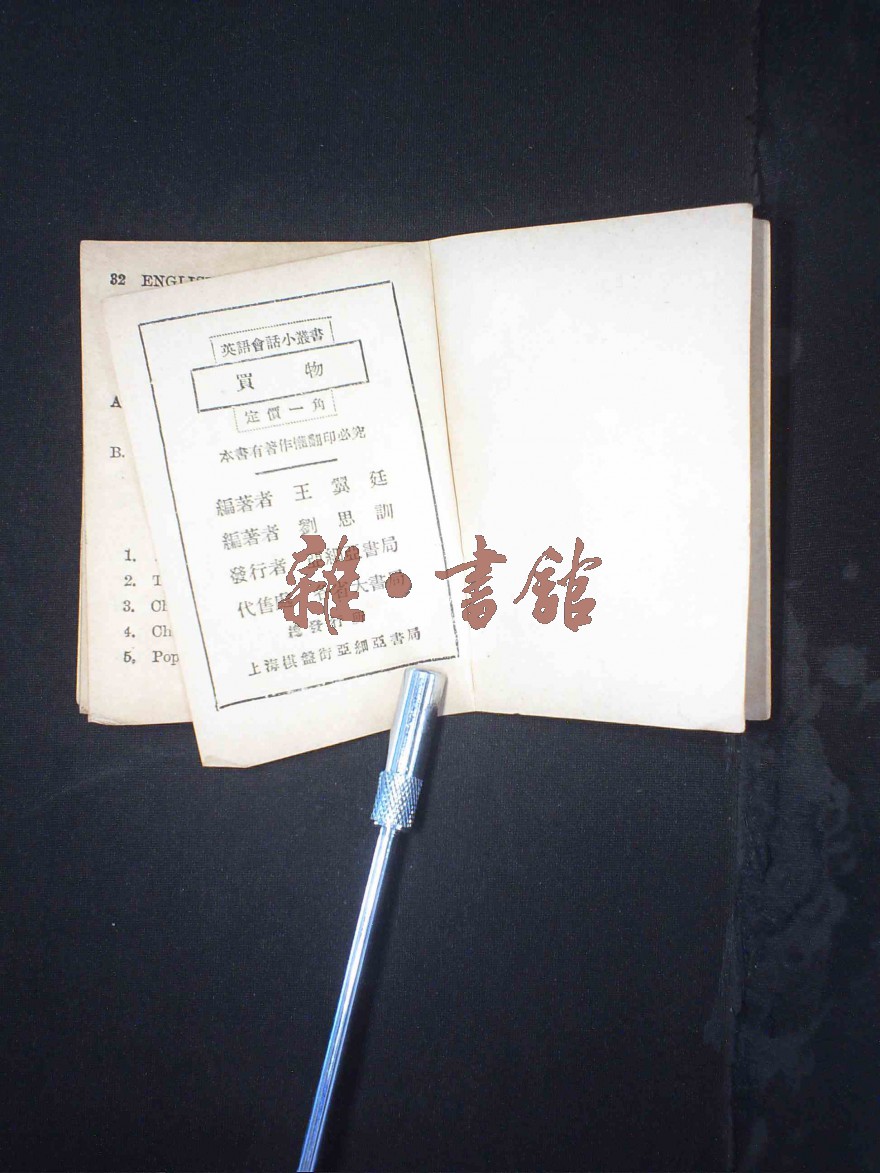 32 ENGLIS
A
B.
1.
2. T
3. Ch
4. Ch
5. Pop
英語會話小叢書
買物
定價一角
本書有著作權翻印必究
編著者 王翼廷
編著者 劉思訓
發行者 亞細亞書局
代售處 各省大書局
總發行所
上海棋盤街亞細亞書局
雜·書館